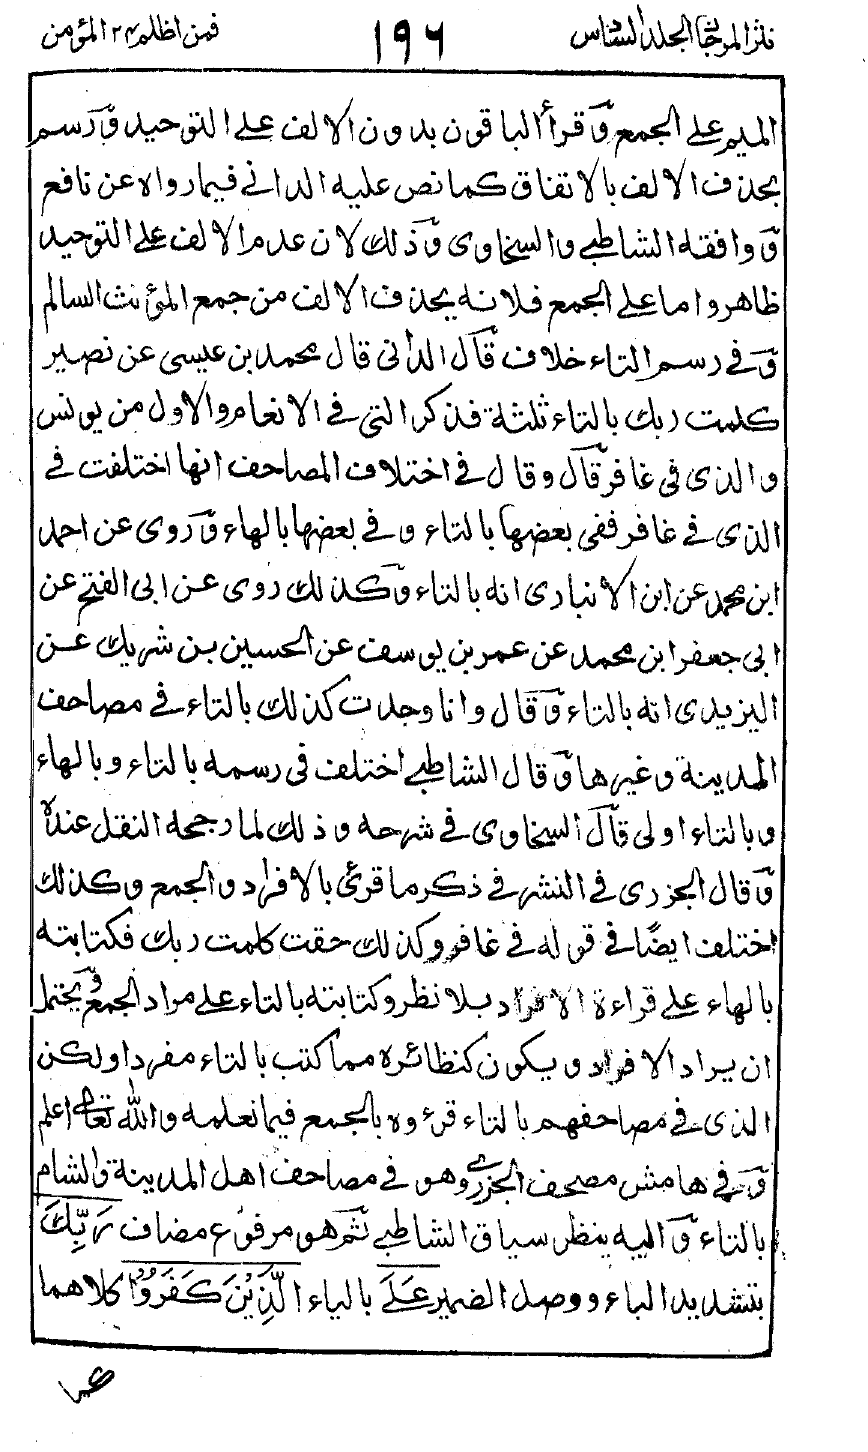 نثر المرجان الجلد السادس ١٩٦ فمن اظلم ٢٤ المؤمن
الميم على الجمع وقرأ الباقون بدون الالف على التوحيد ورسم
بحذف الالف بالاتفاق كما نص عليه الدانى فيما رواه عن نافع
ووافقه الشاطبى والسخاوى وذلك لان عدم الالف على التوحيد
ظاهر واما على الجمع فلانه بحذف الالف من جمع المؤنث السالم
وفى رسم التاء خلاف قال الدانى قال محمد بن عيسى عن نصير
كلمت ربك بالتاء ثلثة فذكر التى فى الانعام والاول من يونس
والذى فى غافر قال وقال فى اختلاف المصاحف انها اختلفت فى
الذى فى غافر ففى بعضها بالتاء وفى بعضها بالهاء وروى عن احمد
ابن محمد عن ابن الانبارى انه بالتاء وكذلك روى عن ابى الفتح عن
ابى جعفر ابن محمد عن عمر بن يوسف عن الحسين بن شريك عن
اليزيدى انه بالتاء وقال وانا وجدت كذلك بالتاء فى مصاحف
المدينة وغيرها وقال الشاطبى اختلف فى رسمه بالتاء وبالهاء
وبالتاء اولى قال السخاوى فى شرحه وذلك لما رجحه النقل عنده
وقال الجزرى فى النشر فى ذكر ما قرئ بالافراد والجمع وكذلك
اختلف ايضًا فى قوله فى غافر وكذلك حقت كلمت ربك فكتابته
بالهاء على قراءة الافراد بلا نظر وكتابته بالتاء على مراد الجمع ويحتمل
ان يراد الافراد ويكون كنظائره مما كتب بالتاء مفردا ولكن
الذى فى مصاحفهم بالتاء قرءوه بالجمع فيما نعلمه والله تعالى اعلم
وفى هامش مصحف الجزرى وهو فى مصاحف اهل المدينة والشام
بالتاء واليه ينظر سياق الشاطبى ثم هو مرفوع مضاف رَبِّكَ
بتشديد الباء ووصل الضمير عَلَى بالياء الَّذِيْنَ كَفَرُوْا كلاهما